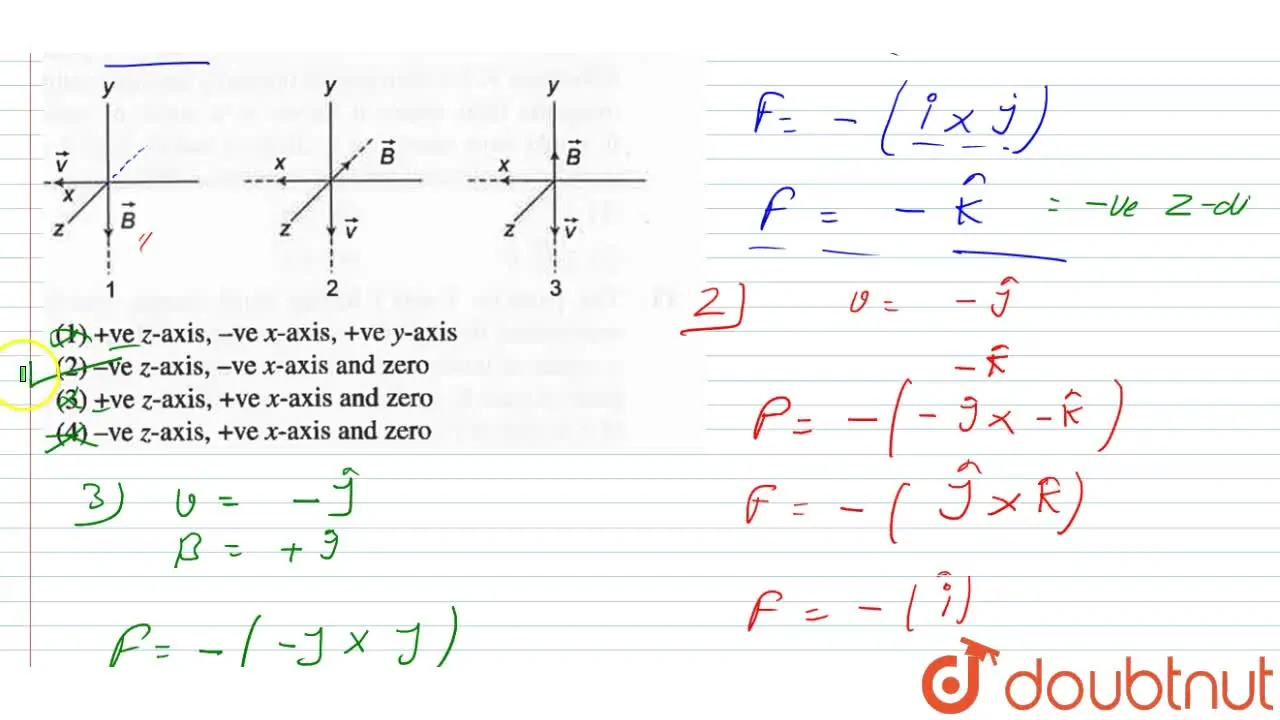 y
y
y
v⃗
x
B⃗
z
1
x
B⃗
z
v⃗
2
x
B⃗
z
v⃗
3
(1) +ve z-axis, –ve x-axis, +ve y-axis
(2) –ve z-axis, –ve x-axis and zero
(3) +ve z-axis, +ve x-axis and zero
(4) –ve z-axis, +ve x-axis and zero
3) v = - ĵ
B = + ĵ
F = - ( -j × j )
F = - ( i × j )
F = - k̂ = -ve Z-di
2] v = - ĵ
- k̂
F = - ( - j × - k̂ )
F = - ( ĵ × k̂ )
F = - ( î )
doubtnut